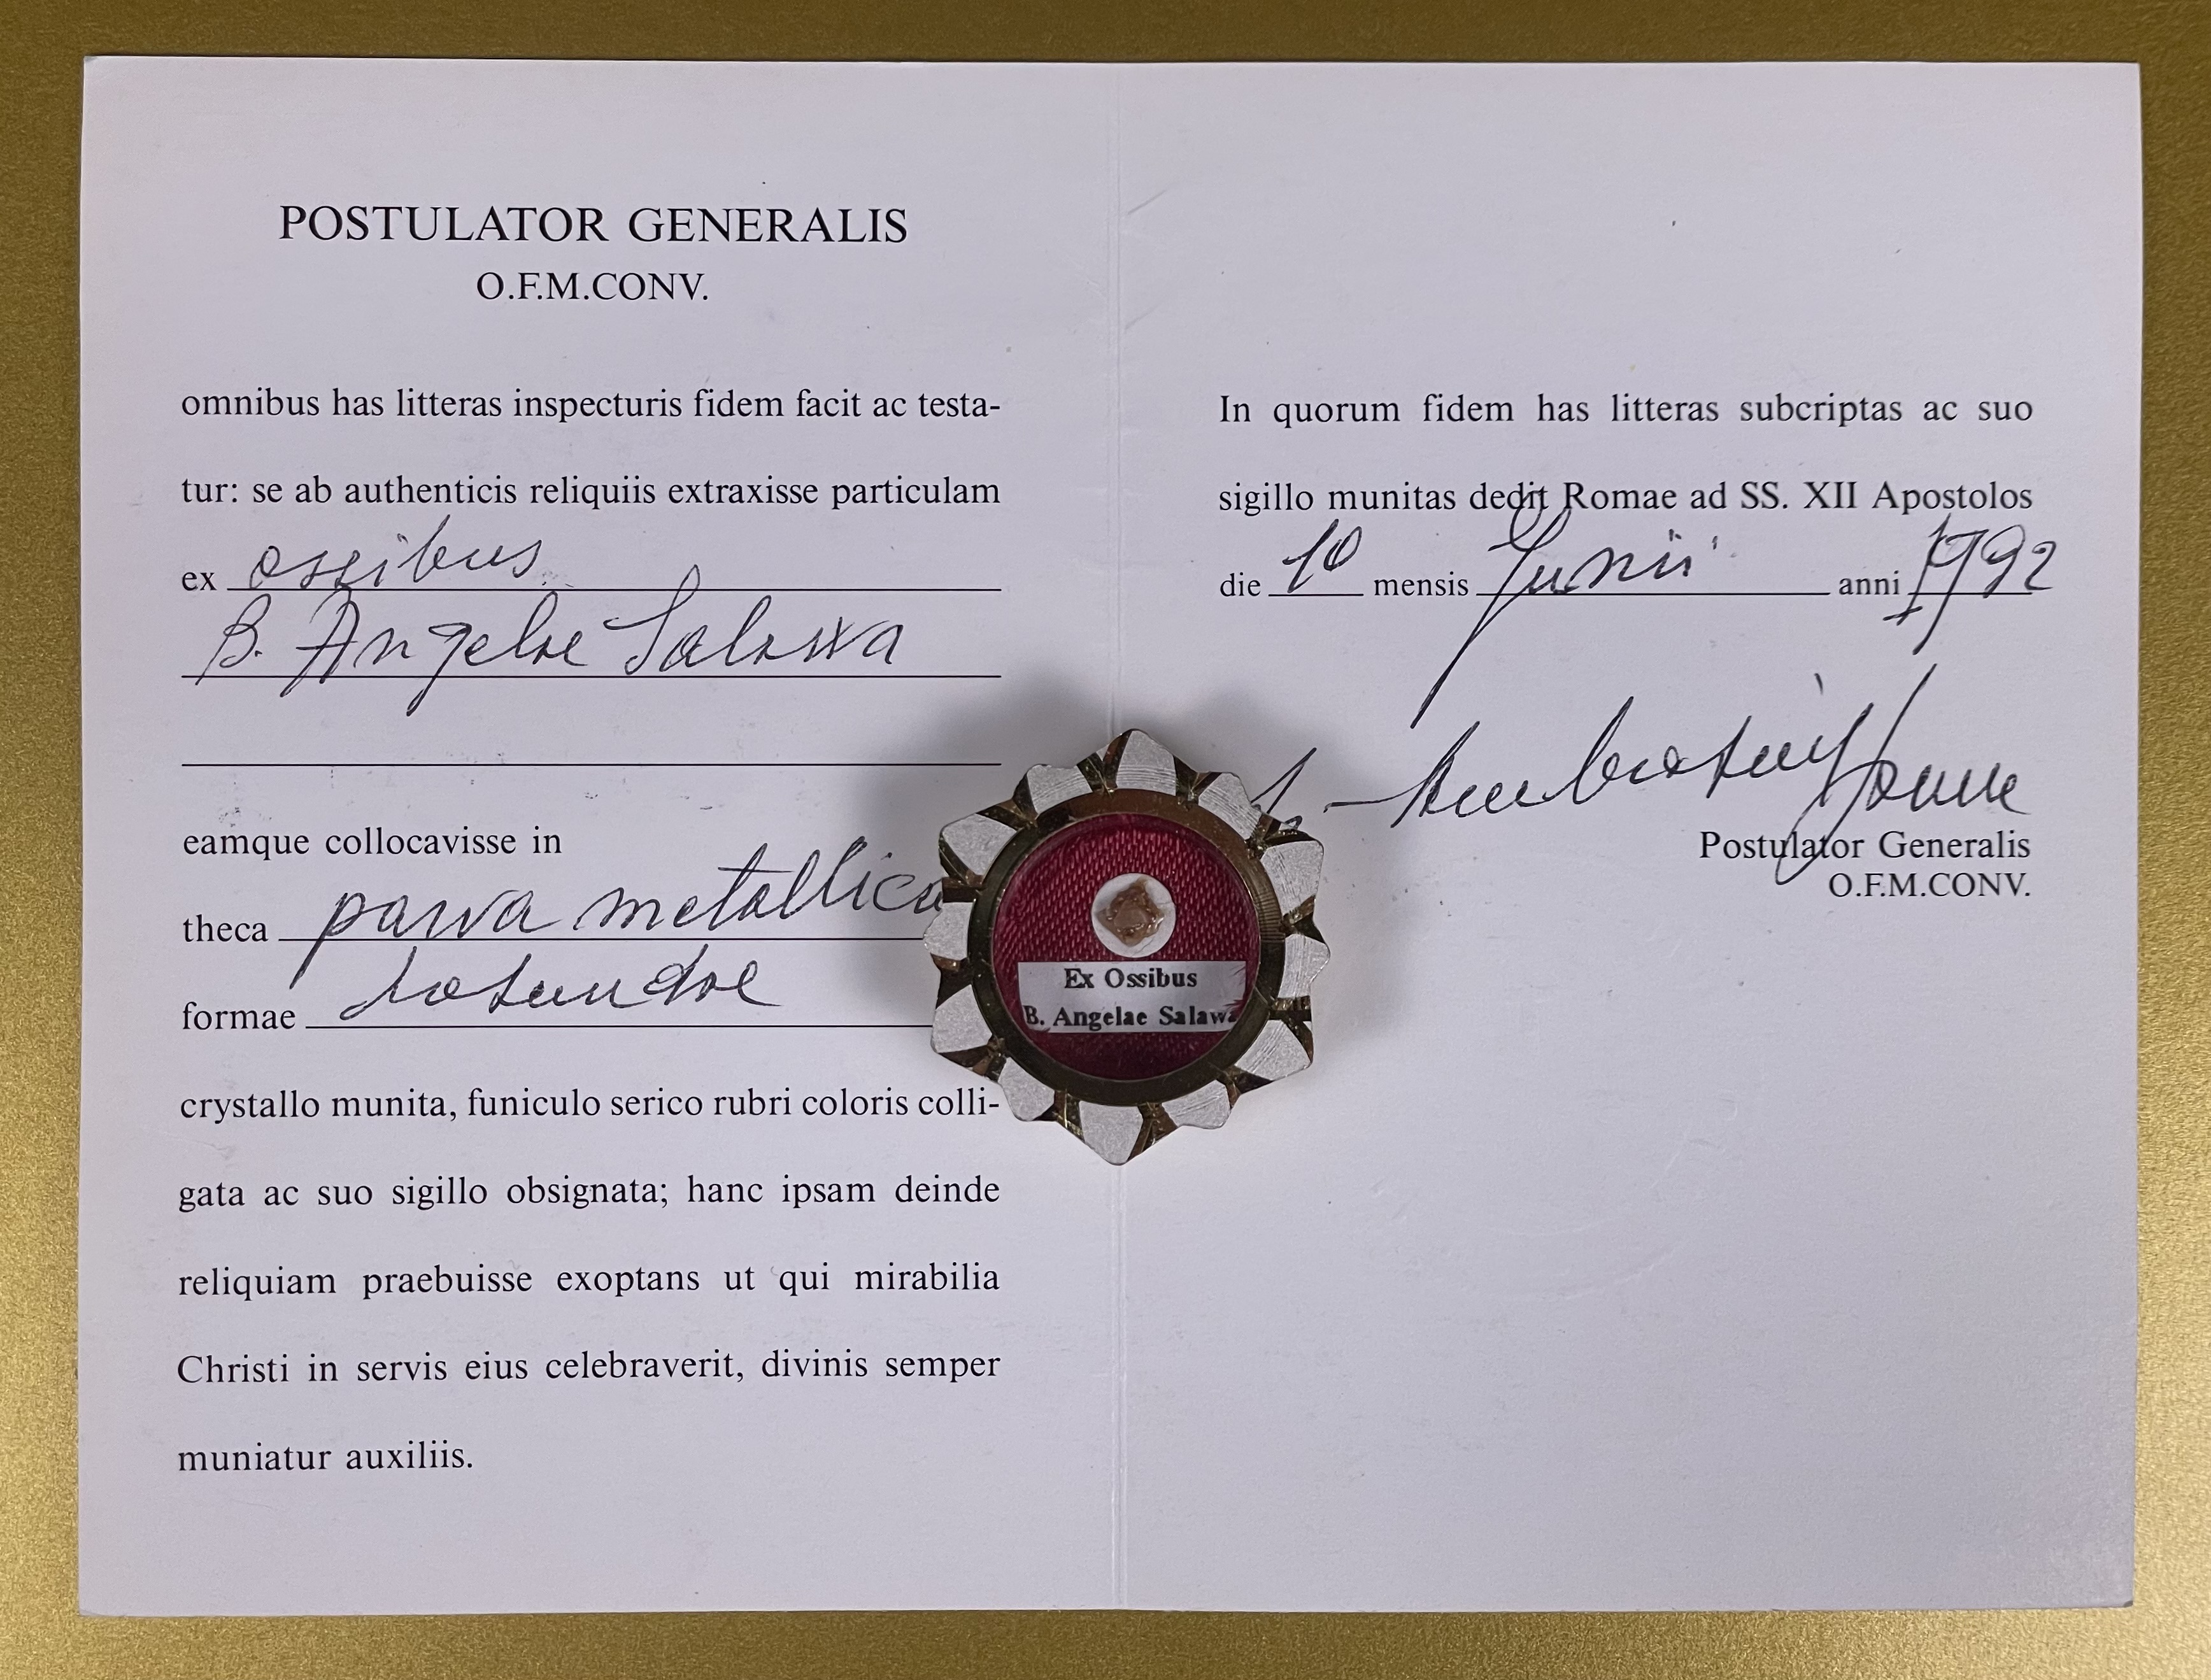 POSTULATOR GENERALIS
O.F.M.CONV.
omnibus has litteras inspecturis fidem facit ac testa-
tur: se ab authenticis reliquiis extraxisse particulam
ex ossibus
B. Angelae Salawa
eamque collocavisse in
theca parva metallica
formae rotundae
crystallo munita, funiculo serico rubri coloris colli-
gata ac suo sigillo obsignata; hanc ipsam deinde
reliquiam praebuisse exoptans ut qui mirabilia
Christi in servis eius celebraverit, divinis semper
muniatur auxiliis.
In quorum fidem has litteras subcriptas ac suo
sigillo munitas dedit Romae ad SS. XII Apostolos
die 10 mensis Junii anni 1992
Postulator Generalis
O.F.M.CONV.
Ex Ossibus
B. Angelae Salawa